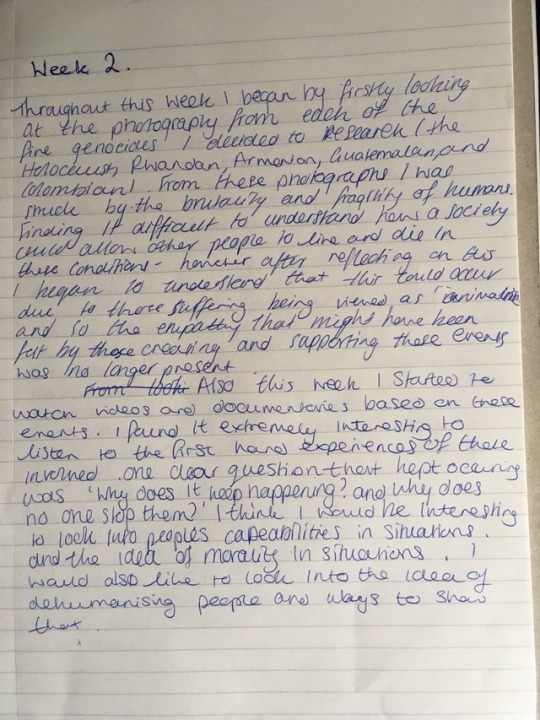 Week 2.
Throughout this week I began by firstly looking
at the photography from each of the
five genocides I decided to research (the
Holocaust, Rwandan, Armenian, Guatemalan, and
Colombian). From these photographs I was
struck by the brutality and fragility of humans.
Finding it difficult to understand how a society
could allow other people to live and die in
these conditions - however after reflecting on this
I began to understand that this could occur
due to those suffering being viewed as
and so the empathy that might have been
felt by those creating and supporting these events
was no longer present.
From looki Also this week I started to
watch videos and documentaries based on these
events. I found it extremely interesting to
listen to the first hand experiences of those
involved. one clear question that kept occuring
was 'Why does it keep happening? and why does
no one stop them?' I think I would be interesting
to look into peoples capeabilities in situations.
and the idea of morality in situations. I
would also like to look into the idea of
dehumanising people and ways to show
that.